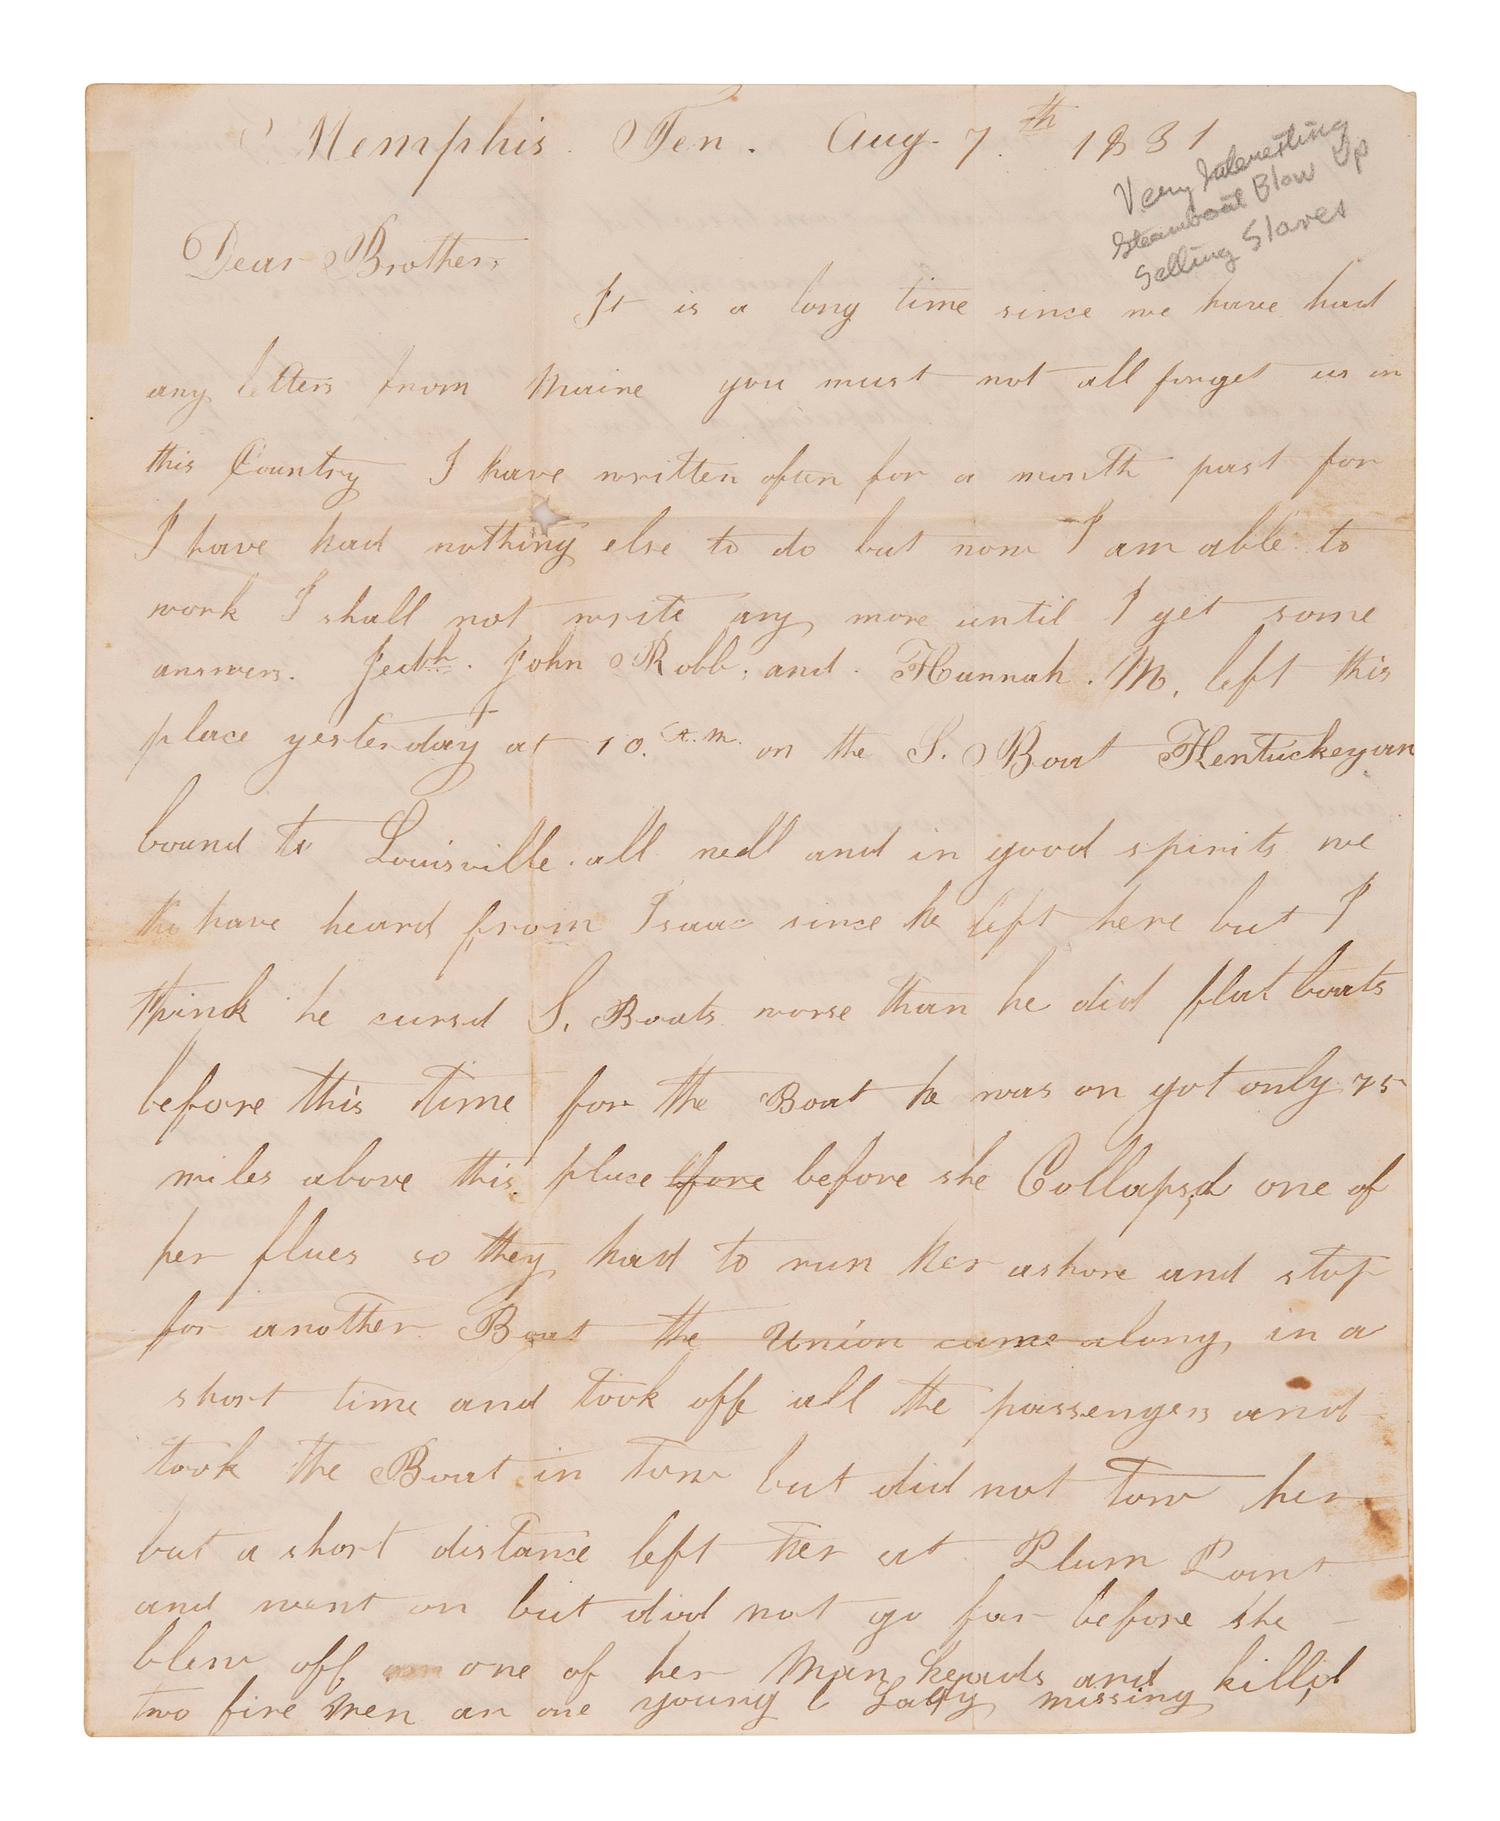 Memphis Ten. Aug. 7.th 1831
Very Interesting
Steamboat Blow Up
Selling Slaves
Dear Brothers
It is a long time since we have had
any letters from Maine you must not all forget us in
this Country I have written often for a month past for
I have had nothing else to do but now I am able to
work I shall not write any more until I get some
answers. John Robb, and Hannah. M, left this
place yesterday at 10. A.M. on the S. Boat Kentuckeyan
bound to Louisville. all well and in good spirits we
have heard from Isaac since he left here but I
think he cursd S. Boats worse than he did flat boats
before this time for the Boat he was on got only 75
miles above this place bfore before she Collapsd one of
her flues so they had to run her ashore and stop
for another Boat the Union came along in a
short time and took off all the passengers and
took the Boat in tow but did not tow her
but a short distance left her at Plum Point
and went on but did not go far before she
blew off one of her Man heads and killid
two fire men an one young Lady missing